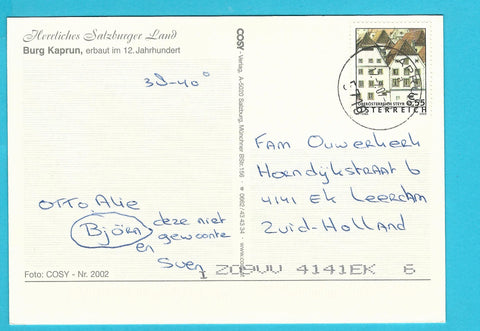 Herrliches Salzburger Land
Burg Kaprun, erbaut im 12. Jahrhundert
38-40°
OTTO Alie
Björn deze niet
gewoonte
en
Sven
Foto: COSY - Nr. 2002
COSY-Verlag, A-5020 Salzburg, Münchner BStr. 156 ☎ 0662/43 43 34 · www.cosy.
OBERÖSTERREICH STEYR
0,55
ÖSTERREICH
Fam Ouwerkerk
Horndijkstraat 6
4141 EK Leerdam
Zuid-Holland
4141EK 6